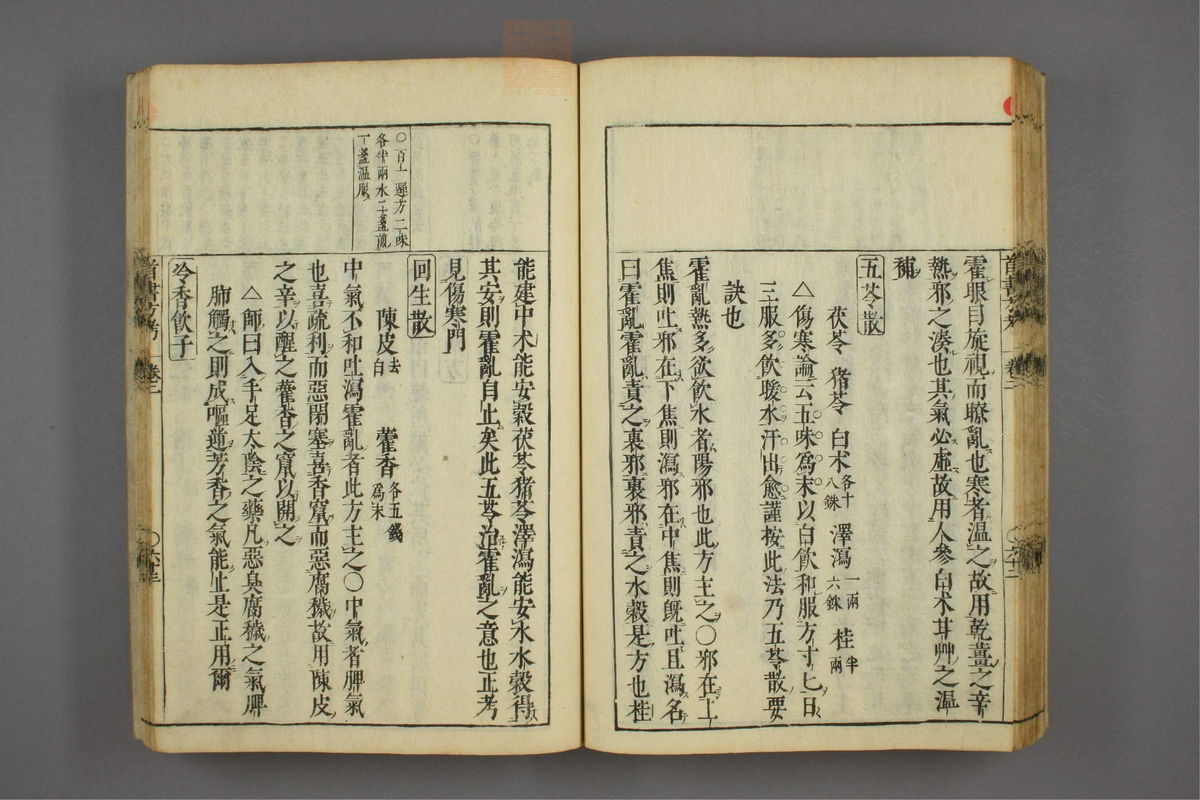 霍眼目旋視而瞭亂也寒者溫之故用乾薑之辛
熱邪之湊也其氣必虛故用人參白术甘艸之溫
補
五苓散
茯苓 猪苓 白术各十八銖 澤瀉一兩六銖 桂半兩
△傷寒論云五味爲末以白飲和服方寸匕日
三服多飲暖水汗出愈謹按此法乃五苓散要
訣也
霍亂熱多欲飲水者陽邪也此方主之○邪在上
焦則吐邪在下焦則瀉邪在中焦則既吐且瀉名
曰霍亂霍亂責之裏邪裏邪責之水穀是方也桂
能建中术能安穀茯苓猪苓澤瀉能安水水穀得
其安則霍亂自止矣此五苓治霍亂之意也正考
見傷寒門
回生散
○百一選方二味
各半兩水二盞煎
一盞溫服
陳皮去白 藿香各五錢爲末
中氣不和吐瀉霍亂者此方主之○中氣者脾氣
也喜疏利而惡閉塞喜香竄而惡腐穢故用陳皮
之辛以醒之藿香之竄以開之
△師曰入手足太陰之藥凡惡臭腐穢之氣脾
肺觸之則成嘔逆芳香之氣能止是正用爾
冷香飲子
卷二
○六十二
卷二
○六十三